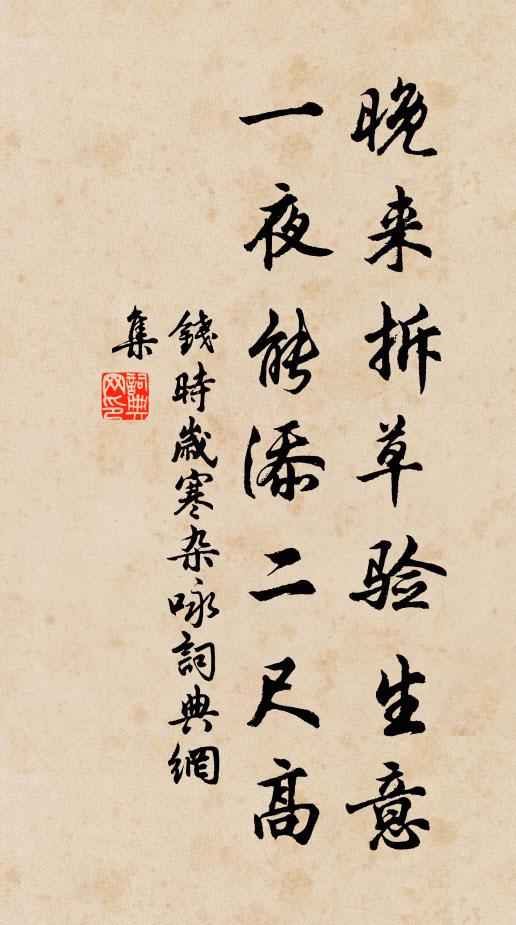 晚来拆草验生意
一夜能添二尺高
錢時歲寒杂咏詞典網
集
詞典网印